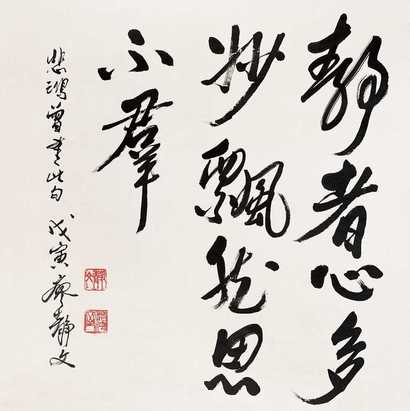 静者心多
妙飘然思
不群
悲鸿曾书此句 戊寅廖静文